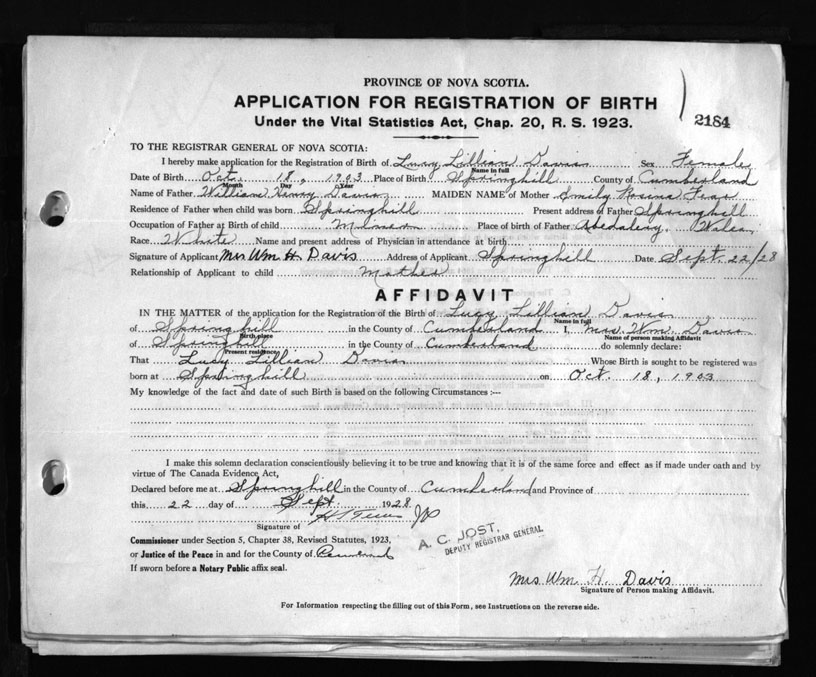 PROVINCE OF NOVA SCOTIA.
APPLICATION FOR REGISTRATION OF BIRTH
Under the Vital Statistics Act, Chap. 20, R. S. 1923.
2184
TO THE REGISTRAR GENERAL OF NOVA SCOTIA:
I hereby make application for the Registration of Birth of Lucy Lillian Davis Sex Female
Name in full
Date of Birth Oct. 18, 1903 Place of Birth Springhill County of Cumberland
Month Day Year
Name of Father William Henry Davis MAIDEN NAME of Mother Emily Rosina
Residence of Father when child was born Springhill Present address of Father Springhill
Occupation of Father at Birth of child Miner Place of birth of Father Wales
Race White Name and present address of Physician in attendance at birth
Signature of Applicant Mrs Wm H. Davis Address of Applicant Springhill Date Sept. 22/28
Relationship of Applicant to child Mother
AFFIDAVIT
IN THE MATTER of the application for the Registration of the Birth of Lucy Lillian Davis
Name in full
of Springhill in the County of Cumberland I, Mrs. Wm. Davis
Birth place Name of person making Affidavit
of Springhill in the County of Cumberland do solemnly declare:
Present residence
That Lucy Lillian Davis Whose Birth is sought to be registered was
born at Springhill on Oct. 18, 1903
My knowledge of the fact and date of such Birth is based on the following Circumstances :—
I make this solemn declaration conscientiously believing it to be true and knowing that it is of the same force and effect as if made under oath and by
virtue of The Canada Evidence Act,
Declared before me at Springhill in the County of Cumberland and Province of
this 22 day of Sept 1928
JP
Signature of
Commissioner under Section 5, Chapter 38, Revised Statutes, 1923,
or Justice of the Peace in and for the County of
If sworn before a Notary Public affix seal.
A. C. JOST,
DEPUTY REGISTRAR GENERAL
Mrs Wm H. Davis
Signature of Person making Affidavit.
For Information respecting the filling out of this Form, see Instructions on the reverse side.